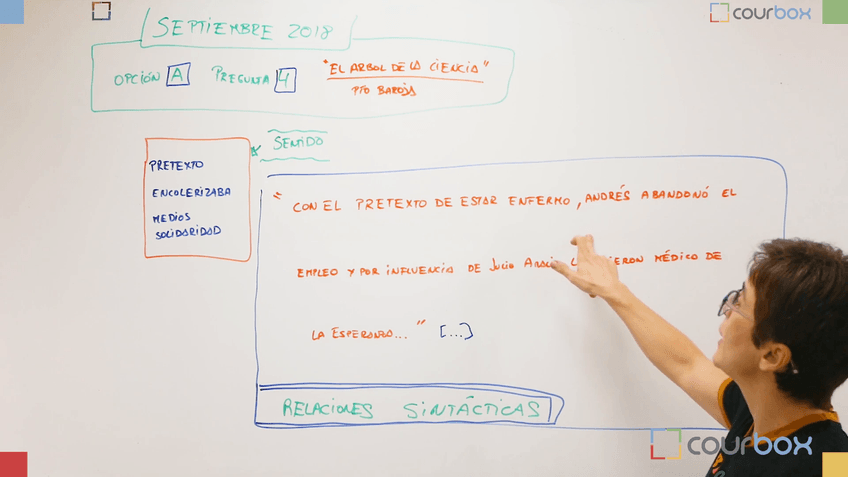 courbox
SEPTIEMBRE 2018
OPCIÓN A PREGUNTA 4 "EL ARBOL DE LA CIENCIA"
PÍO BAROJA
SENTIDO
PRETEXTO
ENCOLERIZABA
MEDIOS
SOLIDARIDAD
"CON EL PRETEXTO DE ESTAR ENFERMO, ANDRÉS ABANDONÓ EL
EMPLEO Y POR INFLUENCIA DE JULIO MÉDICO DE
LA ESPERANZA..." [...]
RELACIONES SINTÁCTICAS
courbox